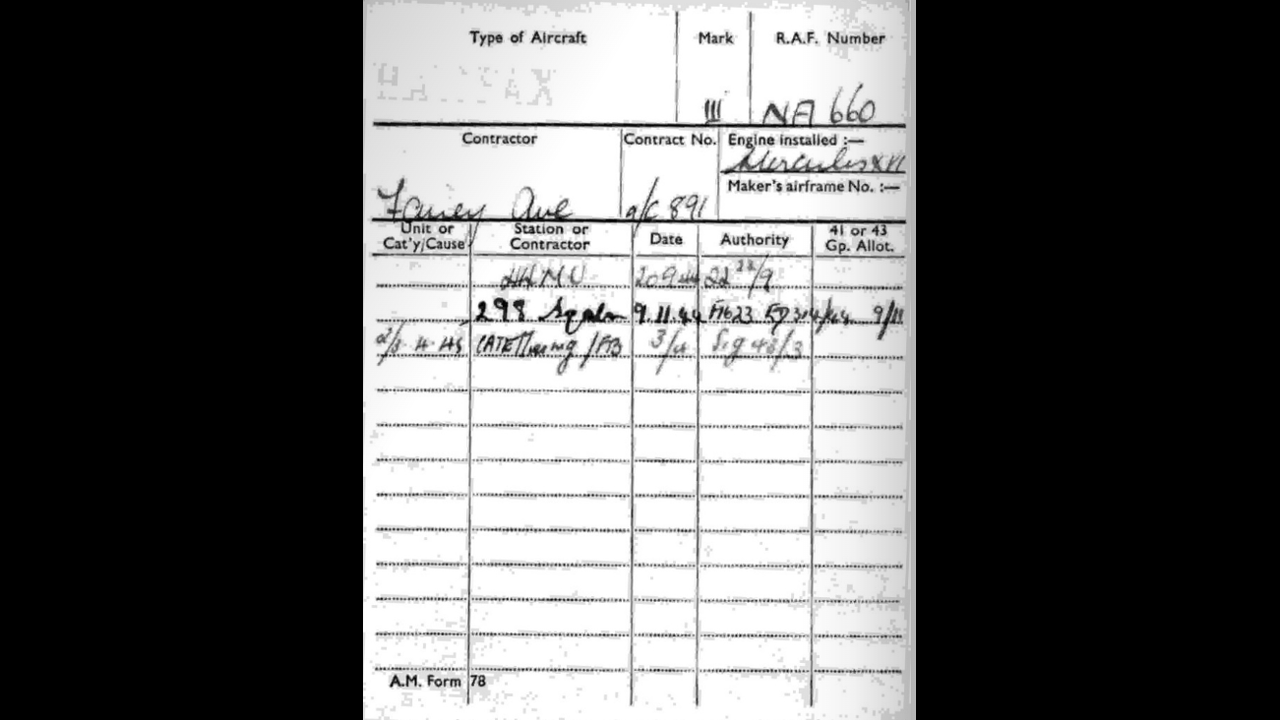 Type of Aircraft Mark R.A.F. Number
HALIFAX
III NA 660
Contractor Contract No. Engine installed :—
Hercules XVI
Maker's airframe No. :—
Fairey Ave a/c 891
Unit or Cat'y/Cause Station or Contractor Date Authority 41 or 43 Gp. Allot.
44 MU 20 9 44 22 22/9
298 Sqdn 9.11.44 9/11
CATE Missing /FB 3/4 Sig 48/3
A.M. Form 78